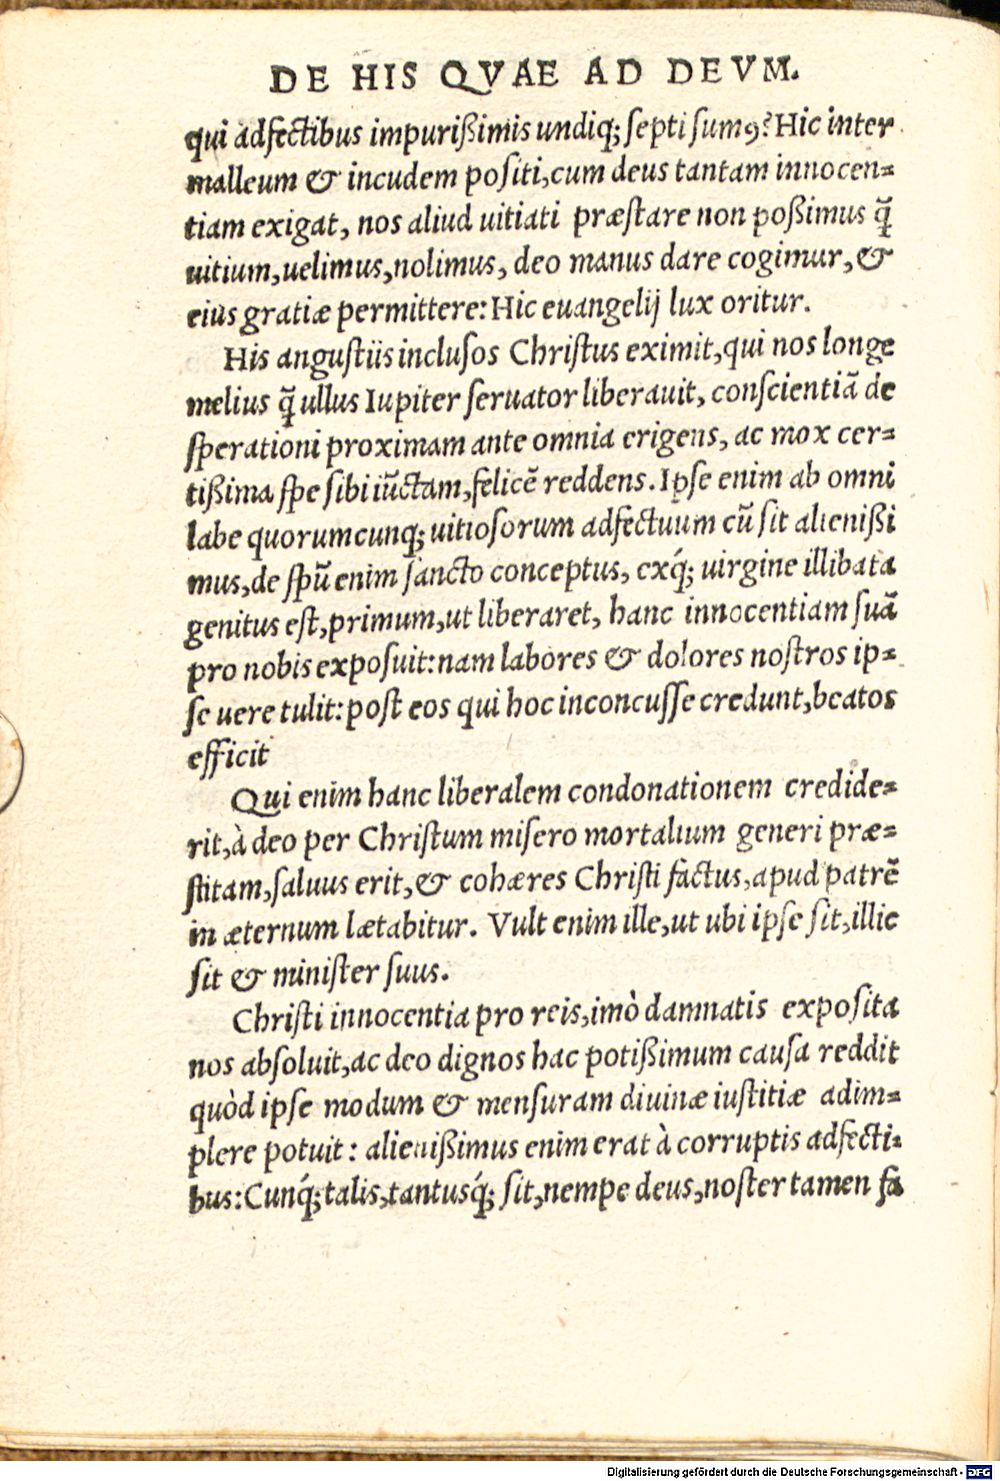 DE HIS QVAE AD DEVM.
qui adfectibus impurißimis undiq; septi sumꝰ? Hic inter
malleum & incudem positi, cum deus tantam innocen=
tiam exigat, nos aliud uitiati præstare non poßimus q̃
uitium, uelimus, nolimus, deo manus dare cogimur, &
eius gratiæ permittere: Hic euangelij lux oritur.
His angustiis inclusos Christus eximit, qui nos longe
melius q̃ ullus Iupiter seruator liberauit, conscientiã de
sperationi proximam ante omnia erigens, ac mox cer=
tißima spe sibi iũctam, felicẽ reddens. Ipse enim ab omni
labe quorumcunq; uitiosorum adfectuum cũ sit alienißi
mus, de spũ enim sancto conceptus, exq́; uirgine illibata
genitus est, primum, ut liberaret, hanc innocentiam suã
pro nobis exposuit: nam labores & dolores nostros ip=
se uere tulit: post eos qui hoc inconcusse credunt, beatos
efficit
Qui enim hanc liberalem condonationem credide=
rit, à deo per Christum misero mortalium generi præ=
stitam, saluus erit, & cohæres Christi factus, apud patrẽ
in æternum lætabitur. Vult enim ille, ut ubi ipse sit, illic
sit & minister suus.
Christi innocentia pro reis, imò damnatis exposita
nos absoluit, ac deo dignos hac potißimum causa reddit
quòd ipse modum & mensuram diuinæ iustitiæ adim=
plere potuit: alienißimus enim erat à corruptis adfecti=
bus: Cunq́; talis, tantusq́; sit, nempe deus, noster tamen fa
Digitalisierung gefördert durch die Deutsche Forschungsgemeinschaft - DFG